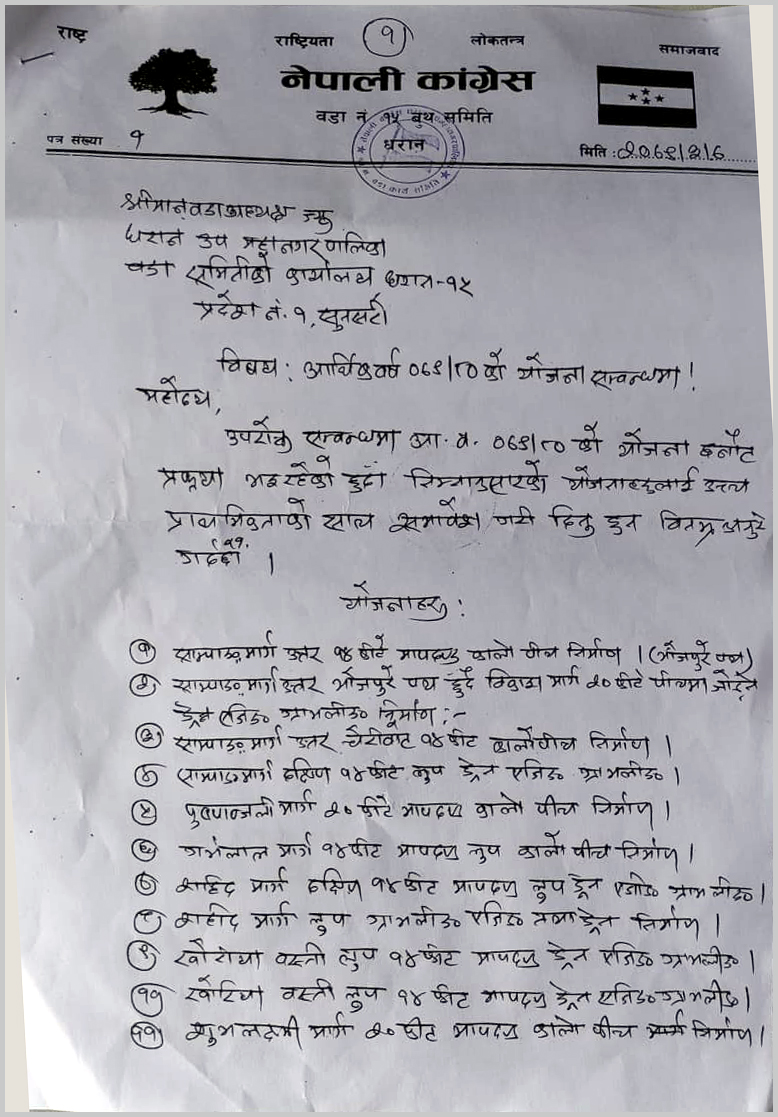 राष्ट्र राष्ट्रियता १ लोकतन्त्र समाजवाद
नेपाली कांग्रेस
वडा नं १५ बुथ समिति
धरान
पत्र संख्या १ मिति : २०७९।२।६
श्रीमान् वडाअध्यक्ष ज्यु
धरान उप महानगरपालिका
वडा समितिको कार्यालय धरान-१५
प्रदेश नं. १, सुनसरी
विषय : आर्थिक वर्ष ०७९।८० को योजना सम्वन्धमा !
महोदय,
उपरोक्त सम्वन्धमा आ.व. ०७९।८० को योजना छनौट
प्रकृया भइरहेको हुदाँ निम्नानुसारको योजनाहरुलाई उच्च
प्राथमिकताको साथ समावेश गरी दिनु हुन विनम्र अनुरोध
गर्दछौं ।
योजनाहरु :
१ साम्पाङ मार्ग उत्तर १४ फीटे मापदण्ड कालो पीच निर्माण । (भोजपुरे पथ)
२ साम्पाङ मार्ग उत्तर भोजपुरे पथ हुँदै विकास मार्ग २० फीटे पीचमा जोड्ने
ड्रेन एजिङ ग्राभलीङ निर्माण :-
३ साम्पाङ मार्ग उत्तर चौरीवाट १४ फीट कालोपीच निर्माण ।
४ साम्पाङ मार्ग दक्षिण १४ फीट लुप ड्रेन एजिङ ग्राभलीङ ।
५ पुष्पाञ्जली मार्ग २० फीटे मापदण्ड कालो पीच निर्माण ।
६ मार्ग १४ फीट मापदण्ड लुप कालो पीच निर्माण ।
७ शहिद मार्ग दक्षिण १४ फीट मापदण्ड लुप ड्रेन एजीङ ग्राभलीङ ।
८ शहीद मार्ग लुप ग्राभलीङ एजिङ तथा ड्रेन निर्माण ।
९ खोरीया वस्ती लुप १४ फीट मापदण्ड ड्रेन एजिङ ग्राभलीङ ।
१० खोरिया वस्ती लुप १४ फीट मापदण्ड ड्रेन एजिङ ग्राभलीङ ।
११ शुभलक्ष्मी मार्ग २० फीट मापदण्ड कालो पीच मार्ग निर्माण ।